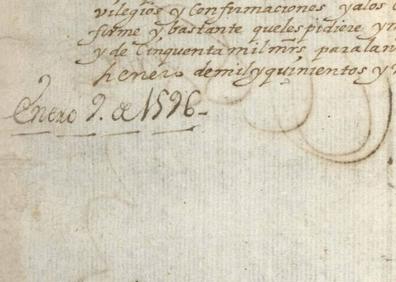 vilegios y Confirmaciones y a los
firme y bastante que les pidiere y
y de Cinquenta mil mrs para la
henero de mil y quinientos y
Enero 9. de 1596